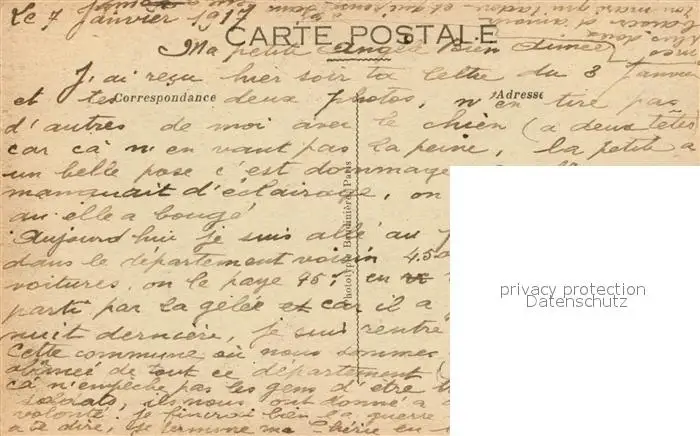 Le 7 Janvier 1917
CARTE POSTALE
Ma petite Angèle Bien Aimée
J'ai reçu hier soir ta lettre du 3 Janvier
et tes deux photos, n'en tire pas
Correspondance
Adresse
d'autres de moi avec le chien (a deux têtes)
car cà n'en vaut pas la peine, la petite a
un belle pose c'est dommage
manquait d'éclairage, on
qu'elle a bougé
Aujourd'hui je suis allé au
dans le département voisin 450
voitures, on le paye 75f en
parti par la gelée et car il a
nuit dernière, je suis rentré
Cette commune où nous sommes
de tout ce département
cà n'empêche pas les gens d'être
soldats, ils nous ont donné a
volonté. Je finirai bien la guerre
a te dire, je termine ma Chérie en
Phototypie Baudinière, Paris
privacy protection
Datenschutz